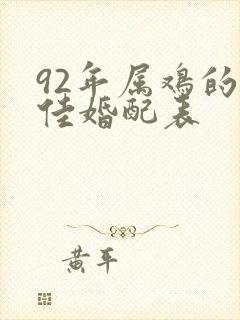 92年属鸡的
佳婚配表
黄平